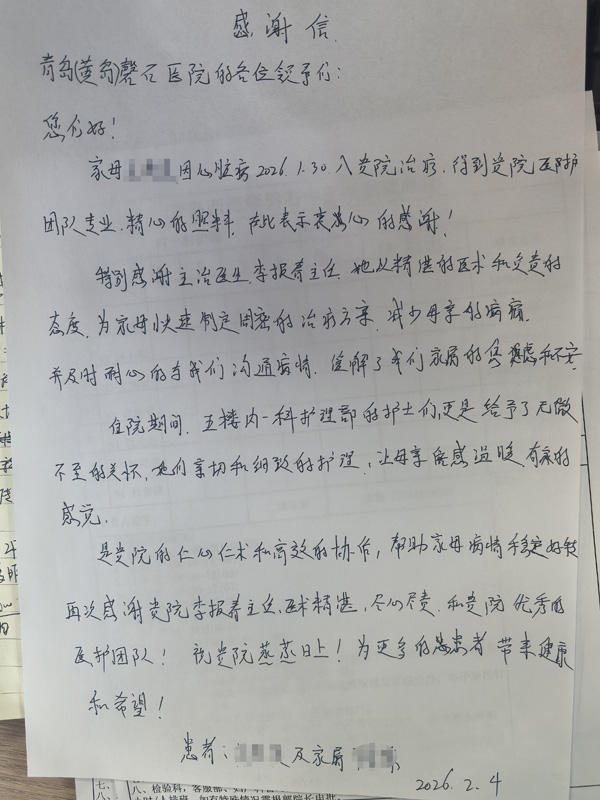 感谢信
青岛(黄岛)磬石医院的各位领导们:
您们好!
家母 因心脏病2026.1.30.入贵院治疗.得到贵院医护
团队专业.精心的照料.在此表示衷心的感谢!
特别感谢主治医生.李报春主任.她以精湛的医术和负责的
态度.为家母快速制定周密的治疗方案.减少母亲的病痛.
并及时耐心的与我们沟通病情.缓解了我们家属的焦虑和不安.
住院期间.五楼内一科护理部的护士们,更是给予了无微
不至的关怀,她们亲切和细致的护理,让母亲倍感温暖.有家的
感觉.
是贵院的仁心仁术和高效的协作,帮助家母病情稳定好转
再次感谢贵院李报春主任.医术精湛,尽心尽责.和贵院优秀的
医护团队!祝贵院蒸蒸日上!为更多的患者带来健康
和希望!
患者: 及家属
2026.2.4
八、检验科,客服部、